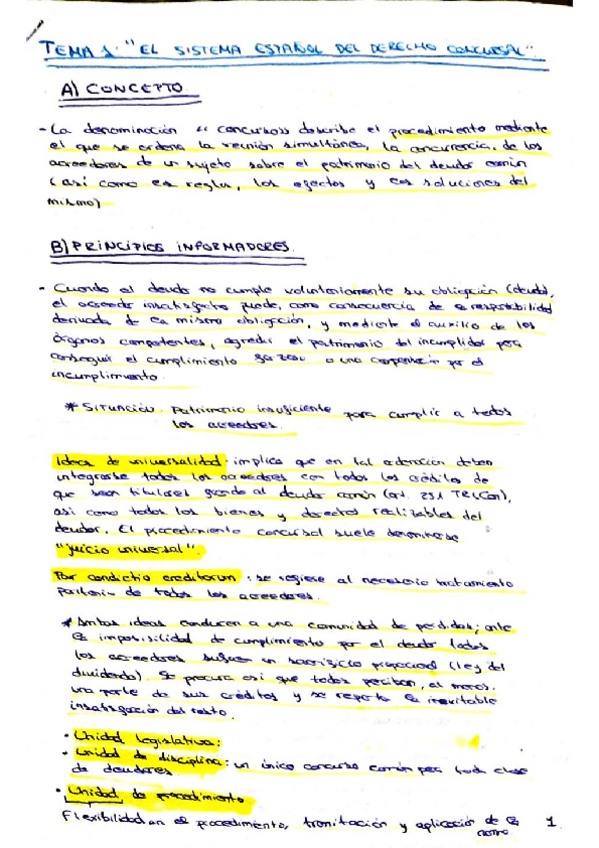 TEMA 1: "EL SISTEMA ESPAÑOL DEL DERECHO CONCURSAL".
A) CONCEPTO
- La denominación "concurso" describe el procedimiento mediante
el que se ordena la reunión simultánea, la concurrencia, de los
acreedores de un sujeto sobre el patrimonio del deudor común
(así como es reglas, los efectos y las soluciones del
mismo)
B) PRINCIPIOS INFORMADORES.
- Cuando el deudor no cumple voluntariamente su obligación (deuda),
el acreedor insatisfecho puede, como consecuencia de la responsabilidad
derivada de la misma obligación, y mediante el auxilio de los
órganos competentes, agredir el patrimonio del incumplidor para
conseguir el cumplimiento forzoso o una compensación por el
incumplimiento.
* SITUACIÓN. Patrimonio insuficiente para cumplir a todos
los acreedores.
Idea de universalidad implica que en tal ordenación deben
integrarse todos los acreedores con todos los créditos de
que sean titulares frente al deudor común (art. 251 TRLCon),
así como todos los bienes y derechos realizables del
deudor. El procedimiento concursal suele denominarse
"juicio universal".
Par condictio creditorum: se refiere al necesario tratamiento
paritario de todos los acreedores.
* Ambas ideas conducen a una comunidad de pérdidas; ante
la imposibilidad de cumplimiento por el deudor todos
los acreedores sufren un sacrificio proporcional (ley del
dividendo). Se procura así que todos perciban, al menos,
una parte de sus créditos y se reparte la inevitable
insatisfacción del resto.
• Unidad legislativa:
• Unidad de disciplina: un único concurso común para toda clase
de deudores
• Unidad de procedimiento
Flexibilidad en el procedimiento, tramitación y aplicación de la
norma
1